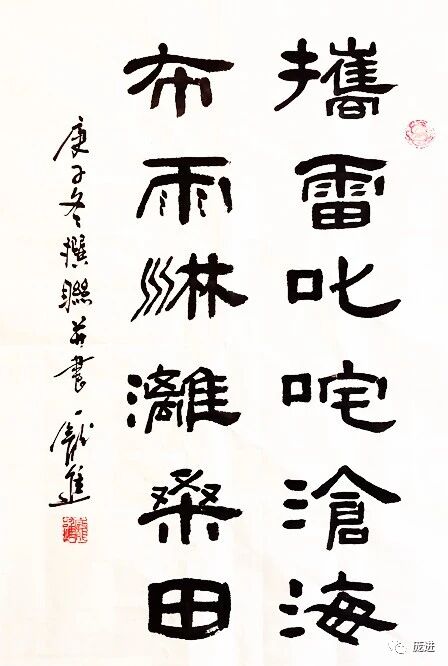 攜雷叱咤滄海
布雨淋漓桑田
庚子冬撰聯并書 龐進
庞进